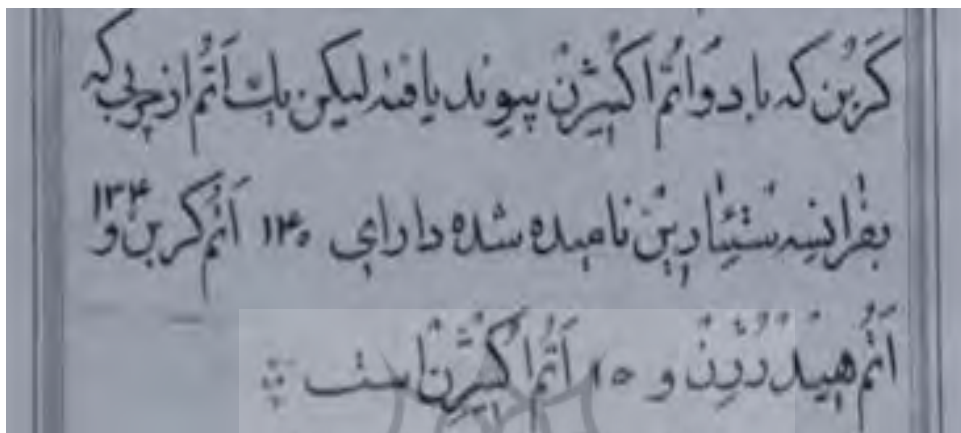 کَرْبُن که با دو اَتُم اکسیژن پیوند یافته لیکن یك اَتُم از چربی که
بفرانسه ستئارین نامیده شده دارای ۱۴۰ اَتُم کربن و ۱۳۴
اَتُم هیدرژن و ۱۵ اَتُم اکسیژن است